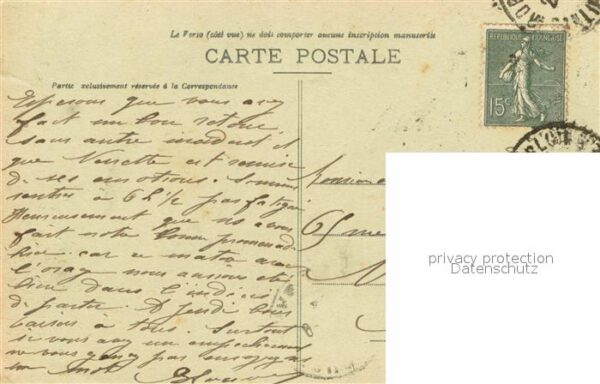 Le Verso (côté vue) ne doit comporter aucune inscription manuscrite
CARTE POSTALE
Partie exclusivement réservée à la Correspondance
RÉPUBLIQUE FRANÇAISE
15c
Esperons que vous avez
fait un bon retour
sans autre incident et
que est remise
de ses émotions. Sommes
rentrés à 6h½ pas fatigués
Heureusement que ns avons
fait notre bonne promenade
hier car ce matin avec
l'orage nous aurions été
bien dans l'
de partir. A Jeudi bons
baisers à tous. Surtout
si vous avez un empêchement
ne vous gênez pas envoyez
un mot
Monsieur
65 rue
privacy protection
Datenschutz